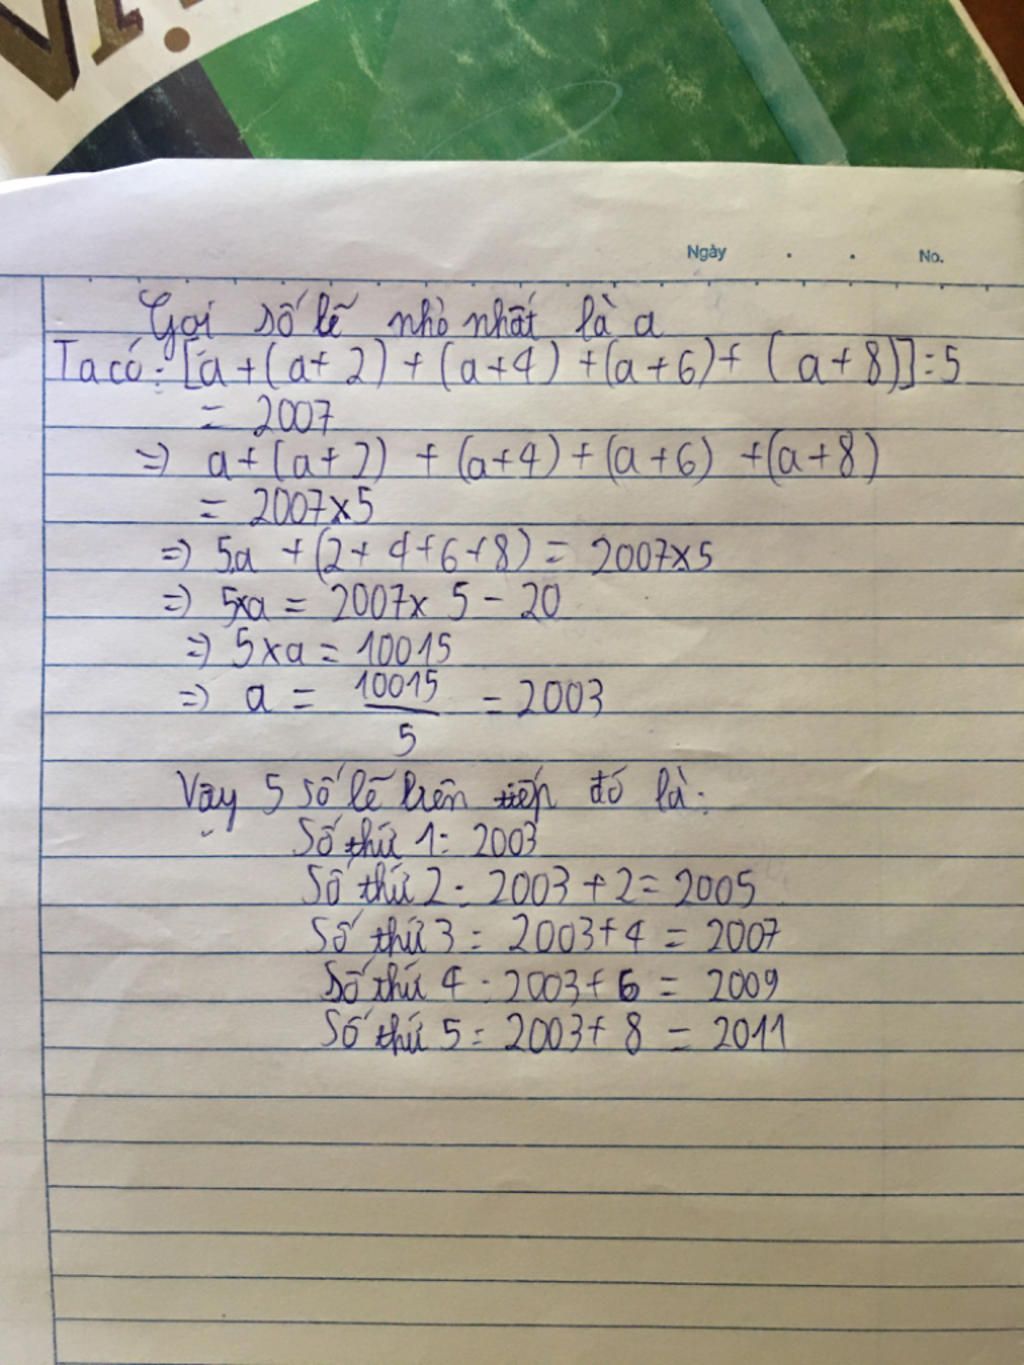 Ngày . . No.
Gọi số lẽ nhỏ nhất là a
Ta có: [a + (a + 2) + (a + 4) + (a + 6) + (a + 8)] : 5
= 2007
=> a + (a + 2) + (a + 4) + (a + 6) + (a + 8)
= 2007 x 5
=> 5.a + (2 + 4 + 6 + 8) = 2007 x 5
=> 5 x a = 2007 x 5 - 20
=> 5 x a = 10015
=> a = 10015/5 = 2003
Vậy 5 số lẽ liên tiếp đó là:
Số thứ 1: 2003
Số thứ 2: 2003 + 2 = 2005
Số thứ 3: 2003 + 4 = 2007
Số thứ 4: 2003 + 6 = 2009
Số thứ 5: 2003 + 8 = 2011